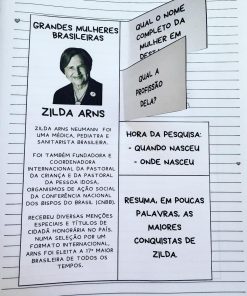 GRANDES MULHERES
BRASILEIRAS
ZILDA ARNS
ZILDA ARNS NEUMANN FOI
UMA MÉDICA, PEDIATRA E
SANITARISTA BRASILEIRA.
FOI TAMBÉM FUNDADORA E
COORDENADORA
INTERNACIONAL DA PASTORAL
DA CRIANÇA E DA PASTORAL
DA PESSOA IDOSA,
ORGANISMOS DE AÇÃO SOCIAL
DA CONFERÊNCIA NACIONAL
DOS BISPOS DO BRASIL (CNBB).
RECEBEU DIVERSAS MENÇÕES
ESPECIAIS E TÍTULOS DE
CIDADÃ HONORÁRIA NO PAÍS.
NUMA SELEÇÃO POR UM
FORMATO INTERNACIONAL,
ARNS FOI ELEITA A 17ª MAIOR
BRASILEIRA DE TODOS OS
TEMPOS.
QUAL O NOME
COMPLETO DA
MULHER EM
QUAL A
PROFISSÃO
DELA?
HORA DA PESQUISA:
- QUANDO NASCEU
- ONDE NASCEU
RESUMA, EM POUCAS
PALAVRAS, AS
MAIORES
CONQUISTAS DE
ZILDA.